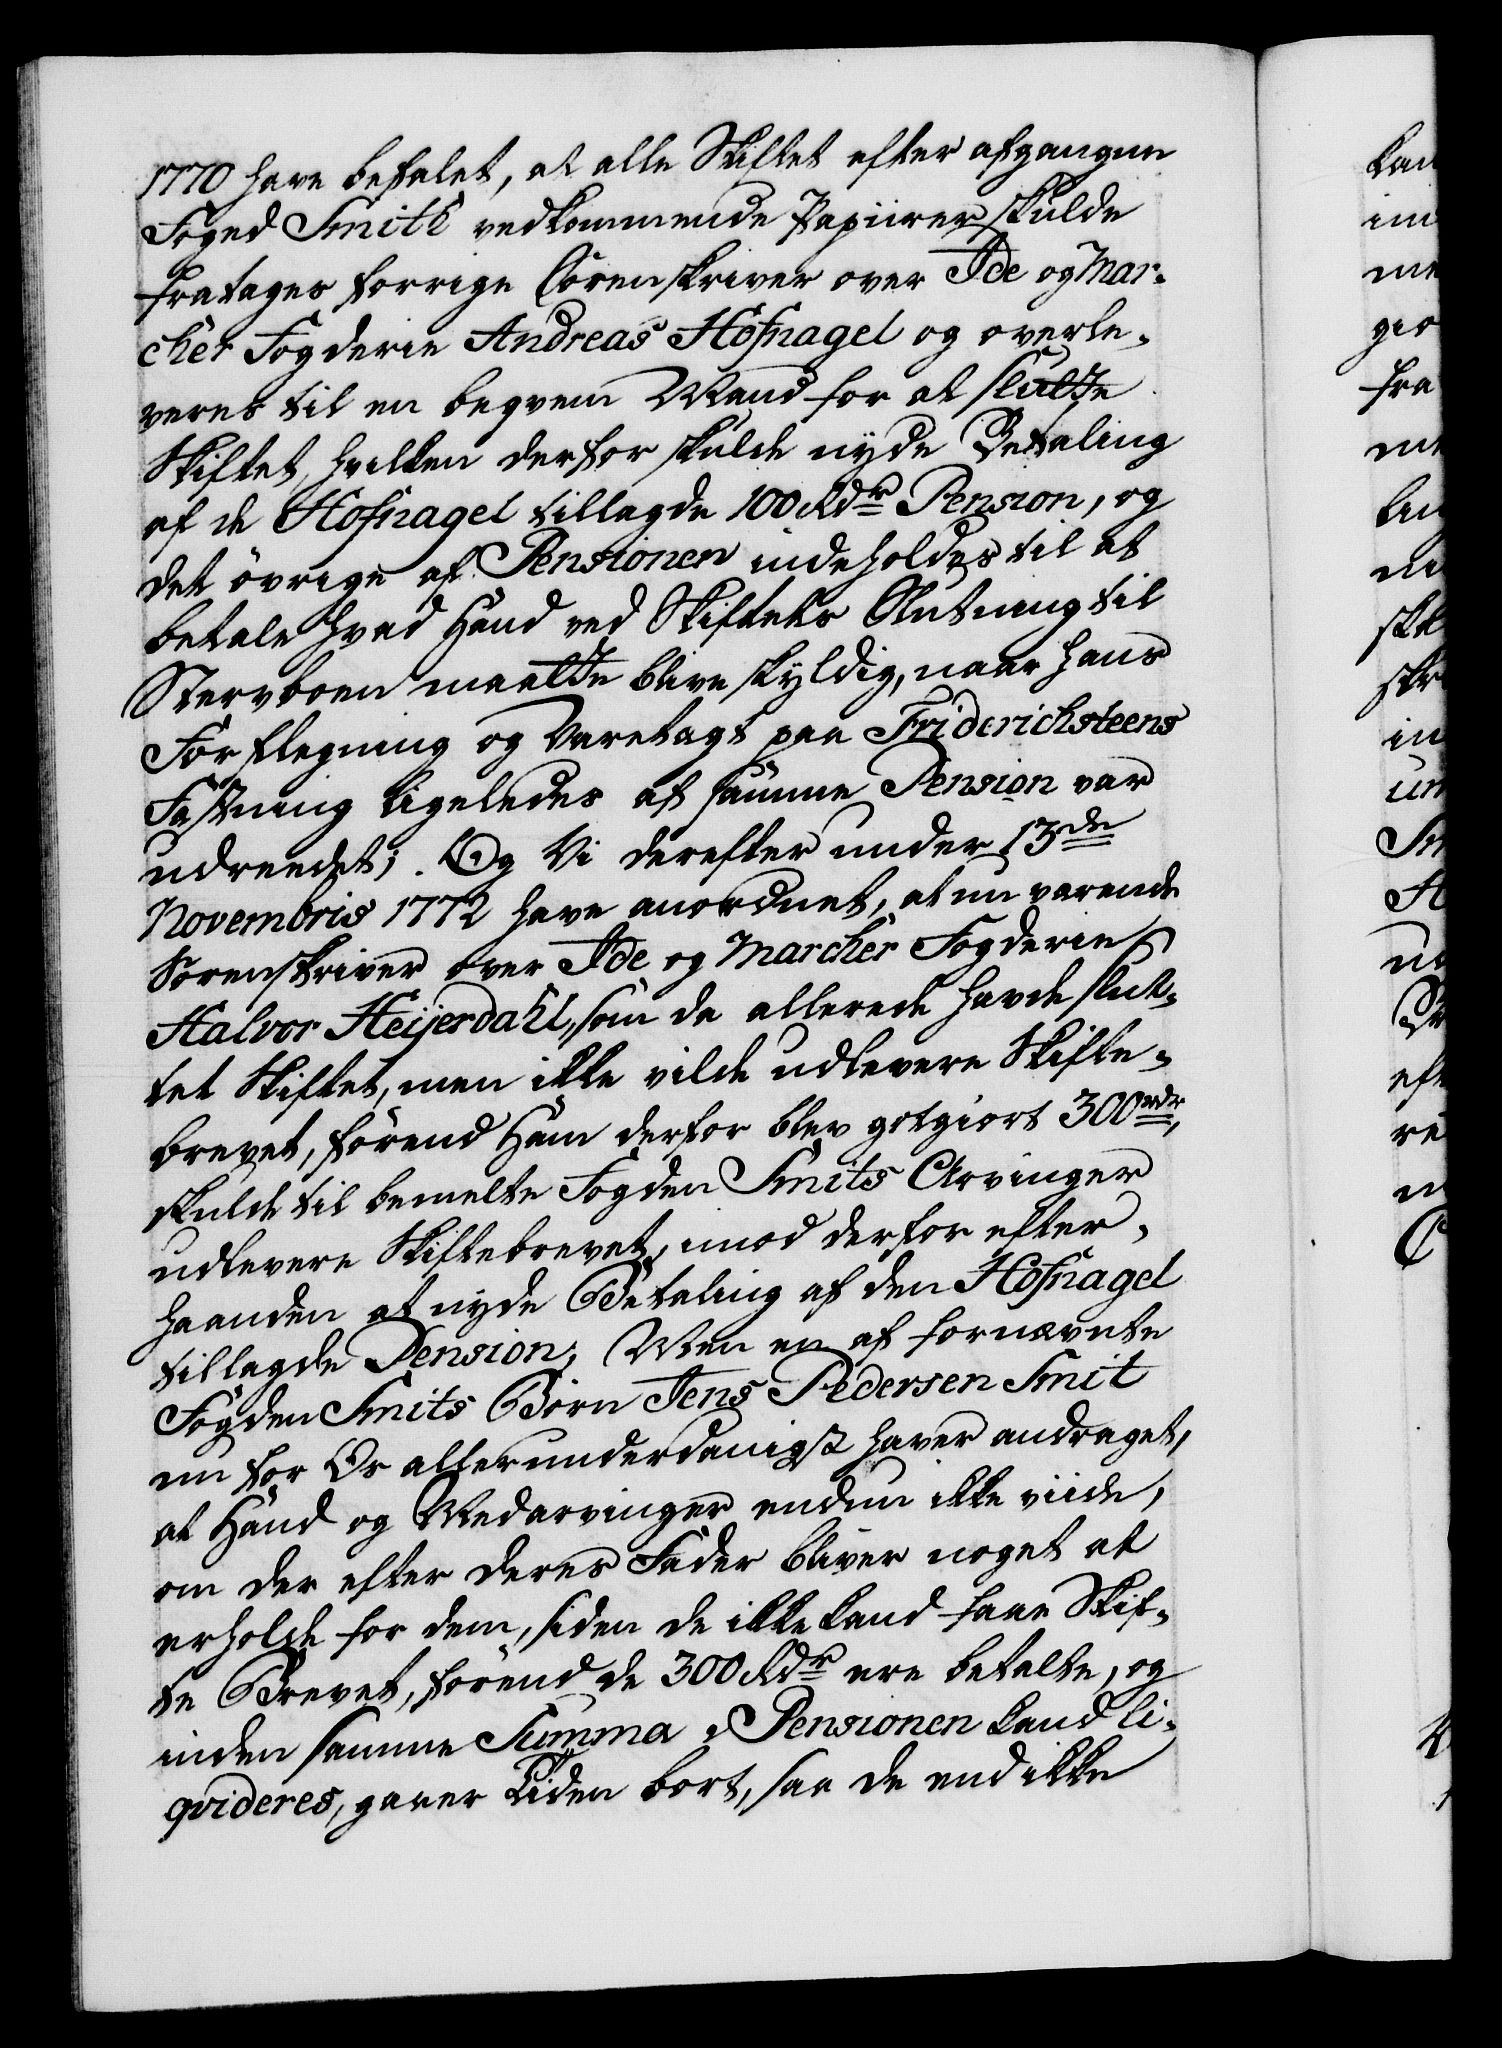 1770 have befalet, at alle Skiftet efter afgangne
Foged Smith vedkommende Papiirer skulde
fratages forrige Sorenskriver over Ide og Mar-
cher Fogderie Andreas Hofnagel og overle-
veres til en beqvem Mand for at slutte
Skiftet, hvilken derfor skulde nyde Betaling
af de Hofnagel tillagde 100 Rdr Pension, og
det övrige af Pensionen indeholdes til at
betale hvad Hand ved Skiftets Slutning til
Stervboen maatte blive skyldig, naar hans
Forflegning og Varetagt paa Friderichsteens
Festning ligeledes af samme Pension var
udreedet; Og Vi derefter under 13de
Novembris 1772 have anordnet, at nu værende
Sorenskriver over Ide og Marcher Fogderie
Halvor Heijerdahl, som da allerede havde slut-
tet Skiftet, men ikke vilde udlevere Skifte-
brevet, förend Ham derfor blev gotgiort 300 rdr,
skulde til bemelte Fogden Smits Arvinger
udlevere Skiftebrevet, imod derfor efter-
haanden at nyde Betaling af den Hofnagel
tillagde Pension; Men en af fornævnte
Fogden Smits Börn Jens Pedersen Smit
nu for Os allerunderdanigst haver andraget,
at Hand og Medarvinger endnu ikke viide,
om der efter deres Fader bliver noget at
erholde for dem, siden de ikke kand faae Skif-
te Brevet, förend de 300 Rdr ere betalte, og
inden samme Summa Pensionen kand li-
qvideres, gaaer Tiden bort, saa de end ikke